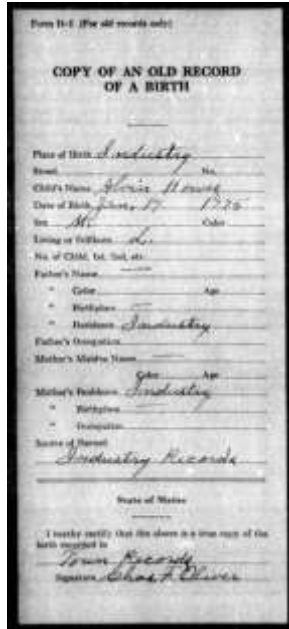 Form H-I (For old records only)
COPY OF AN OLD RECORD
OF A BIRTH
Place of Birth Industry
Street No.
Child's Name Alvin Howes
Date of Birth Jan. 17 1775
Sex M. Color
Living or Stillborn L.
No. of Child, 1st, 2nd, etc.
Father's Name
" Color Age
" Birthplace
" Residence Industry
Father's Occupation
Mother's Maiden Name
Color Age
Mother's Residence Industry
" Birthplace
" Occupation
Source of Record
Industry Records
State of Maine
I hereby certify that the above is a true copy of the
birth recorded in
Town Records
Signature Chas. F. Oliver